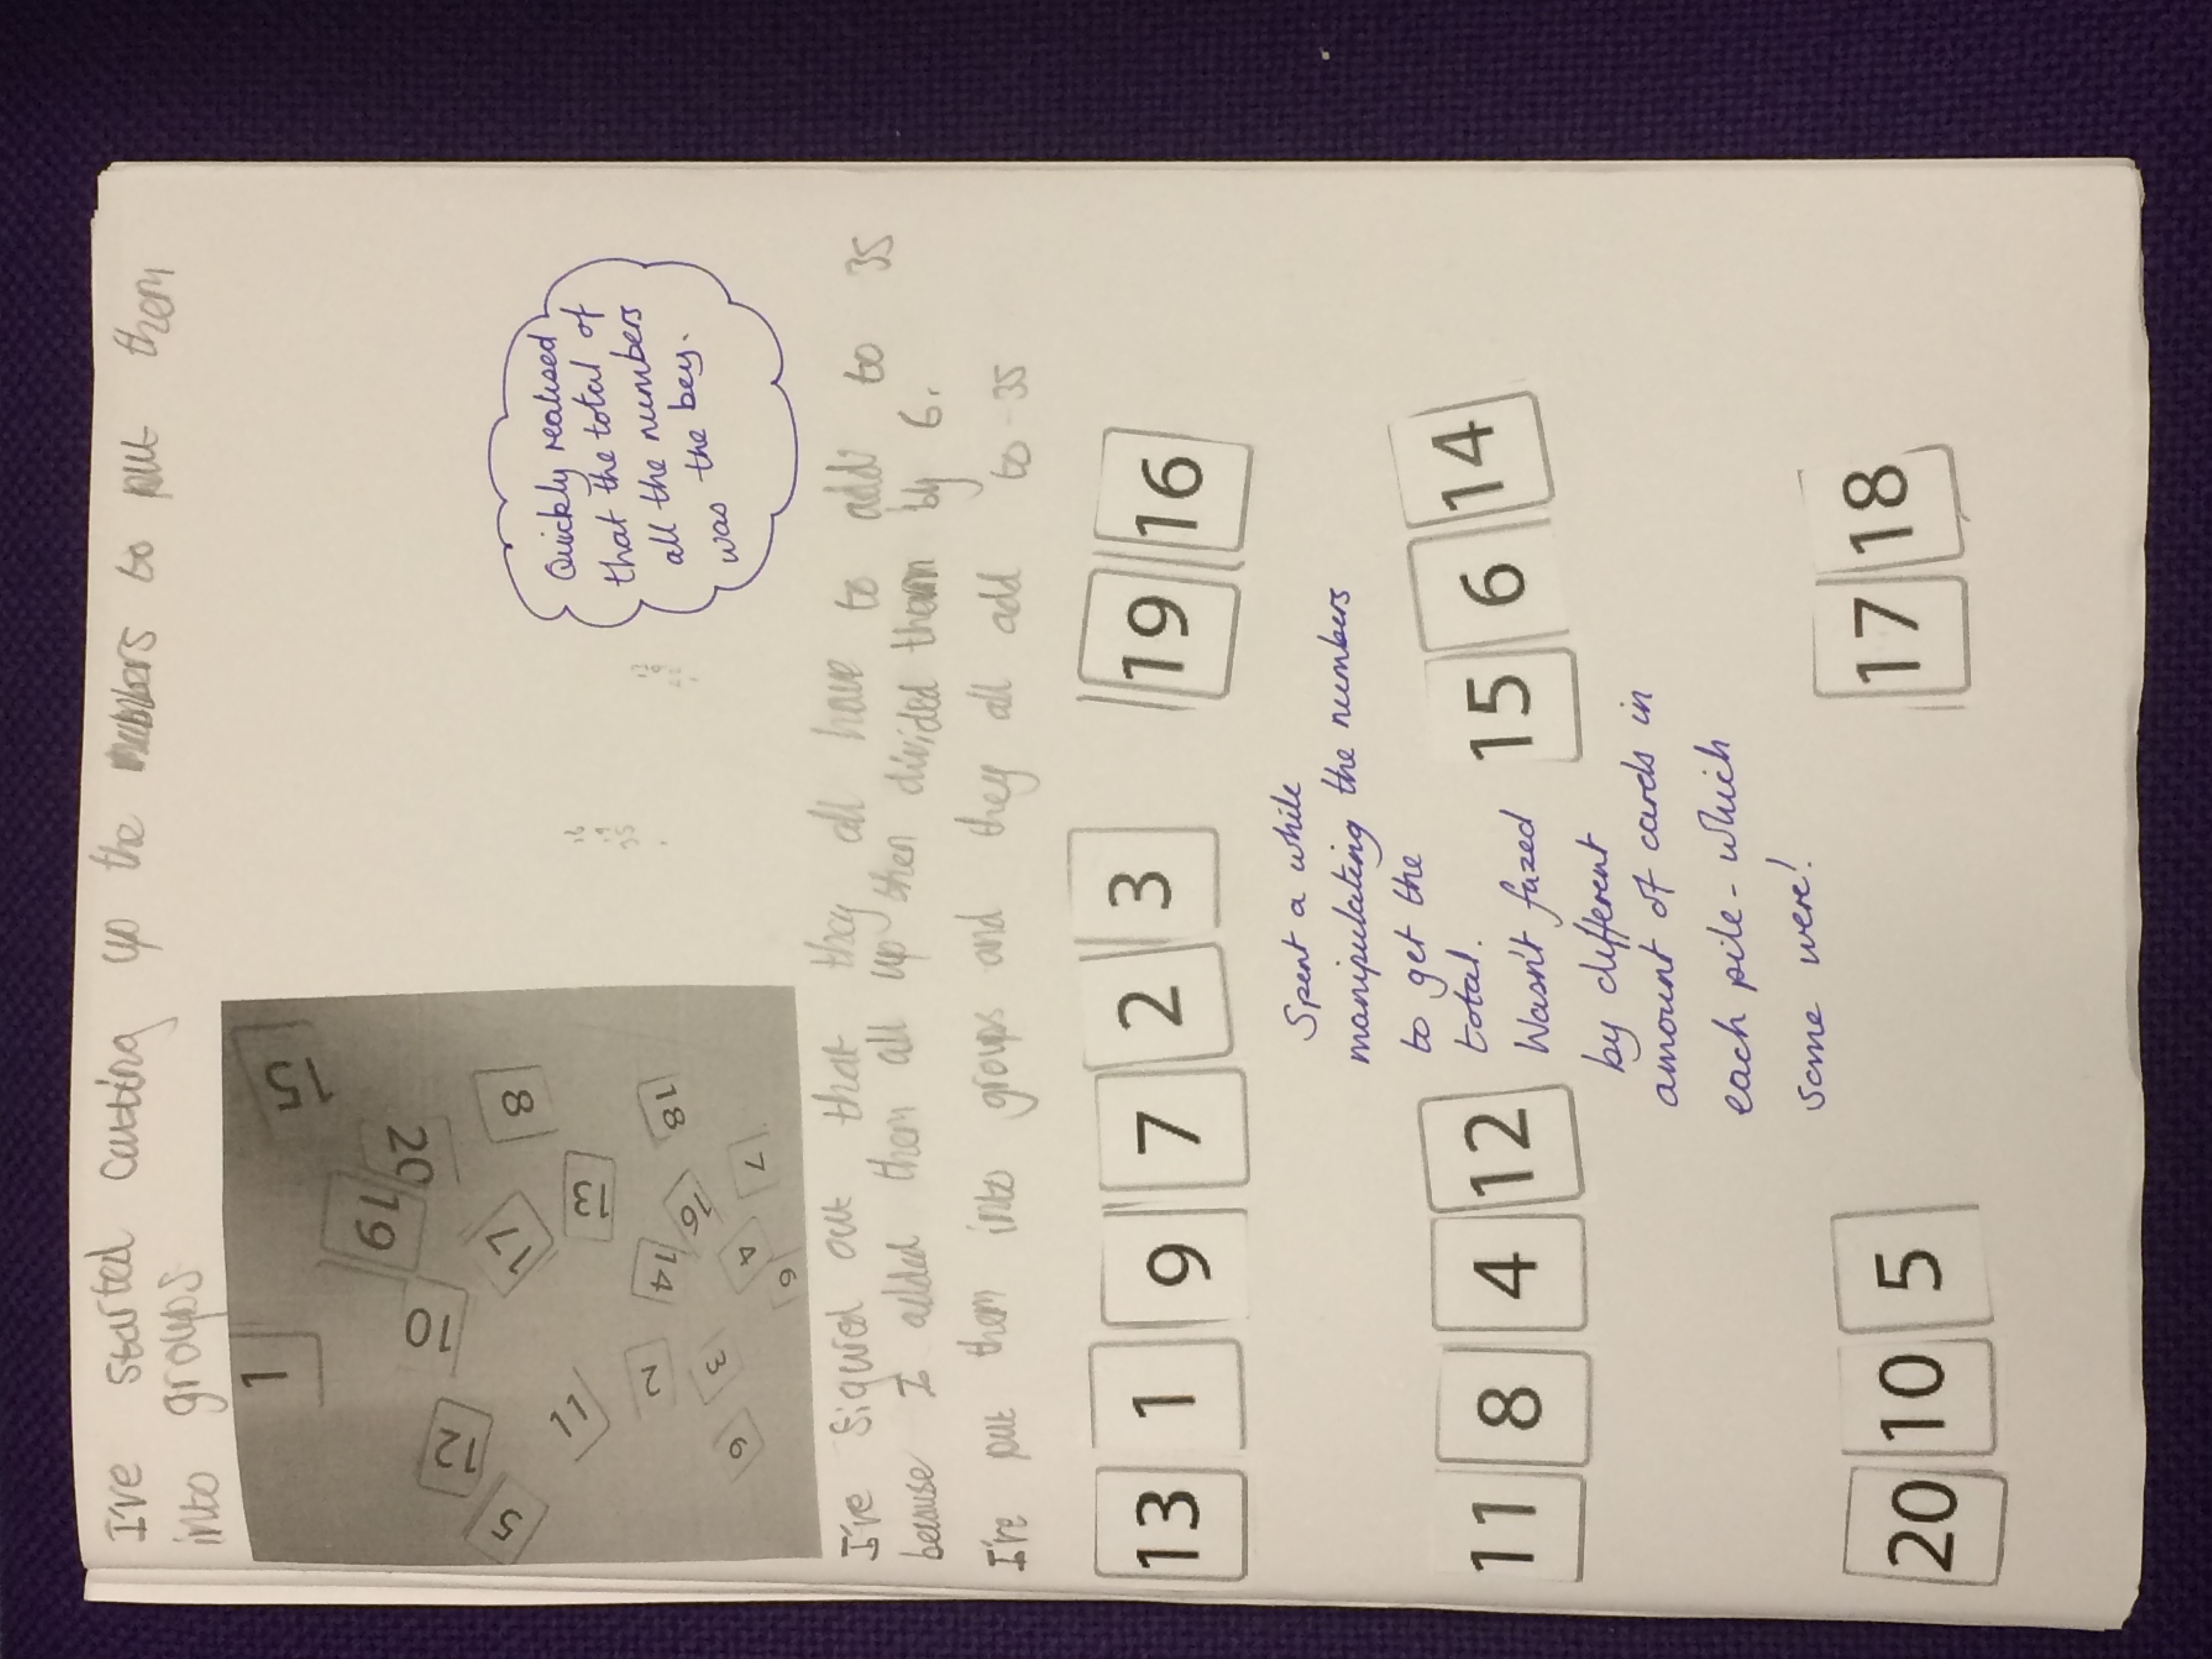 I've started cutting up the numbers to put them
into groups
1
15
19
20
10
12
5
8
17
13
11
18
16
14
2
3
7
4
6
9
Quickly realised
that the total of
all the numbers
was the key.
I've figured out that they all have to add to 35
because I added them all up then divided them by 6.
I've put them into groups and they all add to 35
13 1 9 7 2 3
19 16
Spent a while
manipulating the numbers
to get the
total.
Wasn't fazed
by different
amount of cards in
each pile - which
some were!
11 8 4 12
15 6 14
20 10 5
17 18